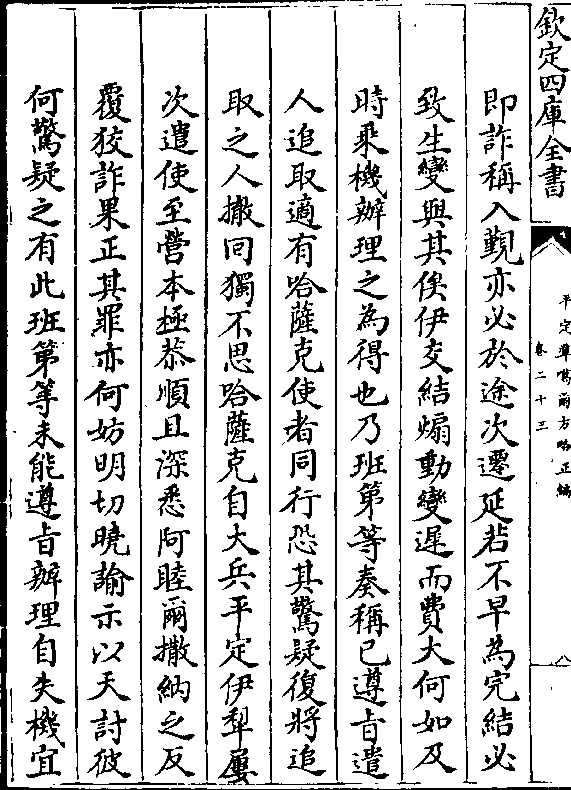 欽定四庫全書
平定準噶爾方略正編
卷二十三
八
即詐稱入覲亦必於途次遷延若不早為完結必
致生變與其俟伊交結煽動變遲而費大何如及
時乘機辦理之為得也乃班第等奏稱已遵旨遣
人追取適有哈薩克使者同行恐其驚疑復將追
取之人撤回獨不思哈薩克自大兵平定伊犁屢
次遣使至營本極恭順且深悉阿睦爾撒納之反
覆狡詐果正其罪亦何妨明切曉諭示以天討彼
何驚疑之有此班第等未能遵旨辦理自失機宜